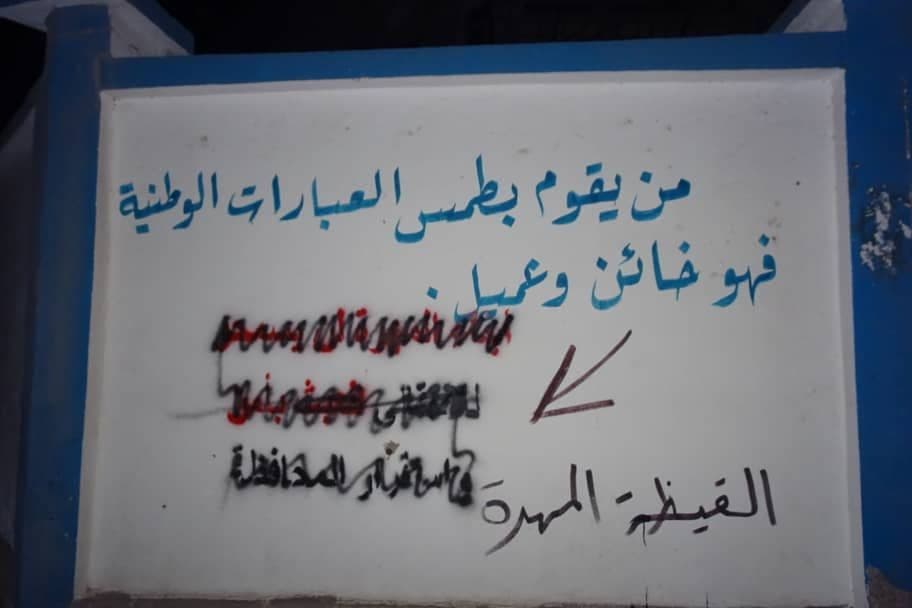 من يقوم بطمس العبارات الوطنية
فهو خائن وعميل.
واستقرار المحافظة
القيظة المهرة